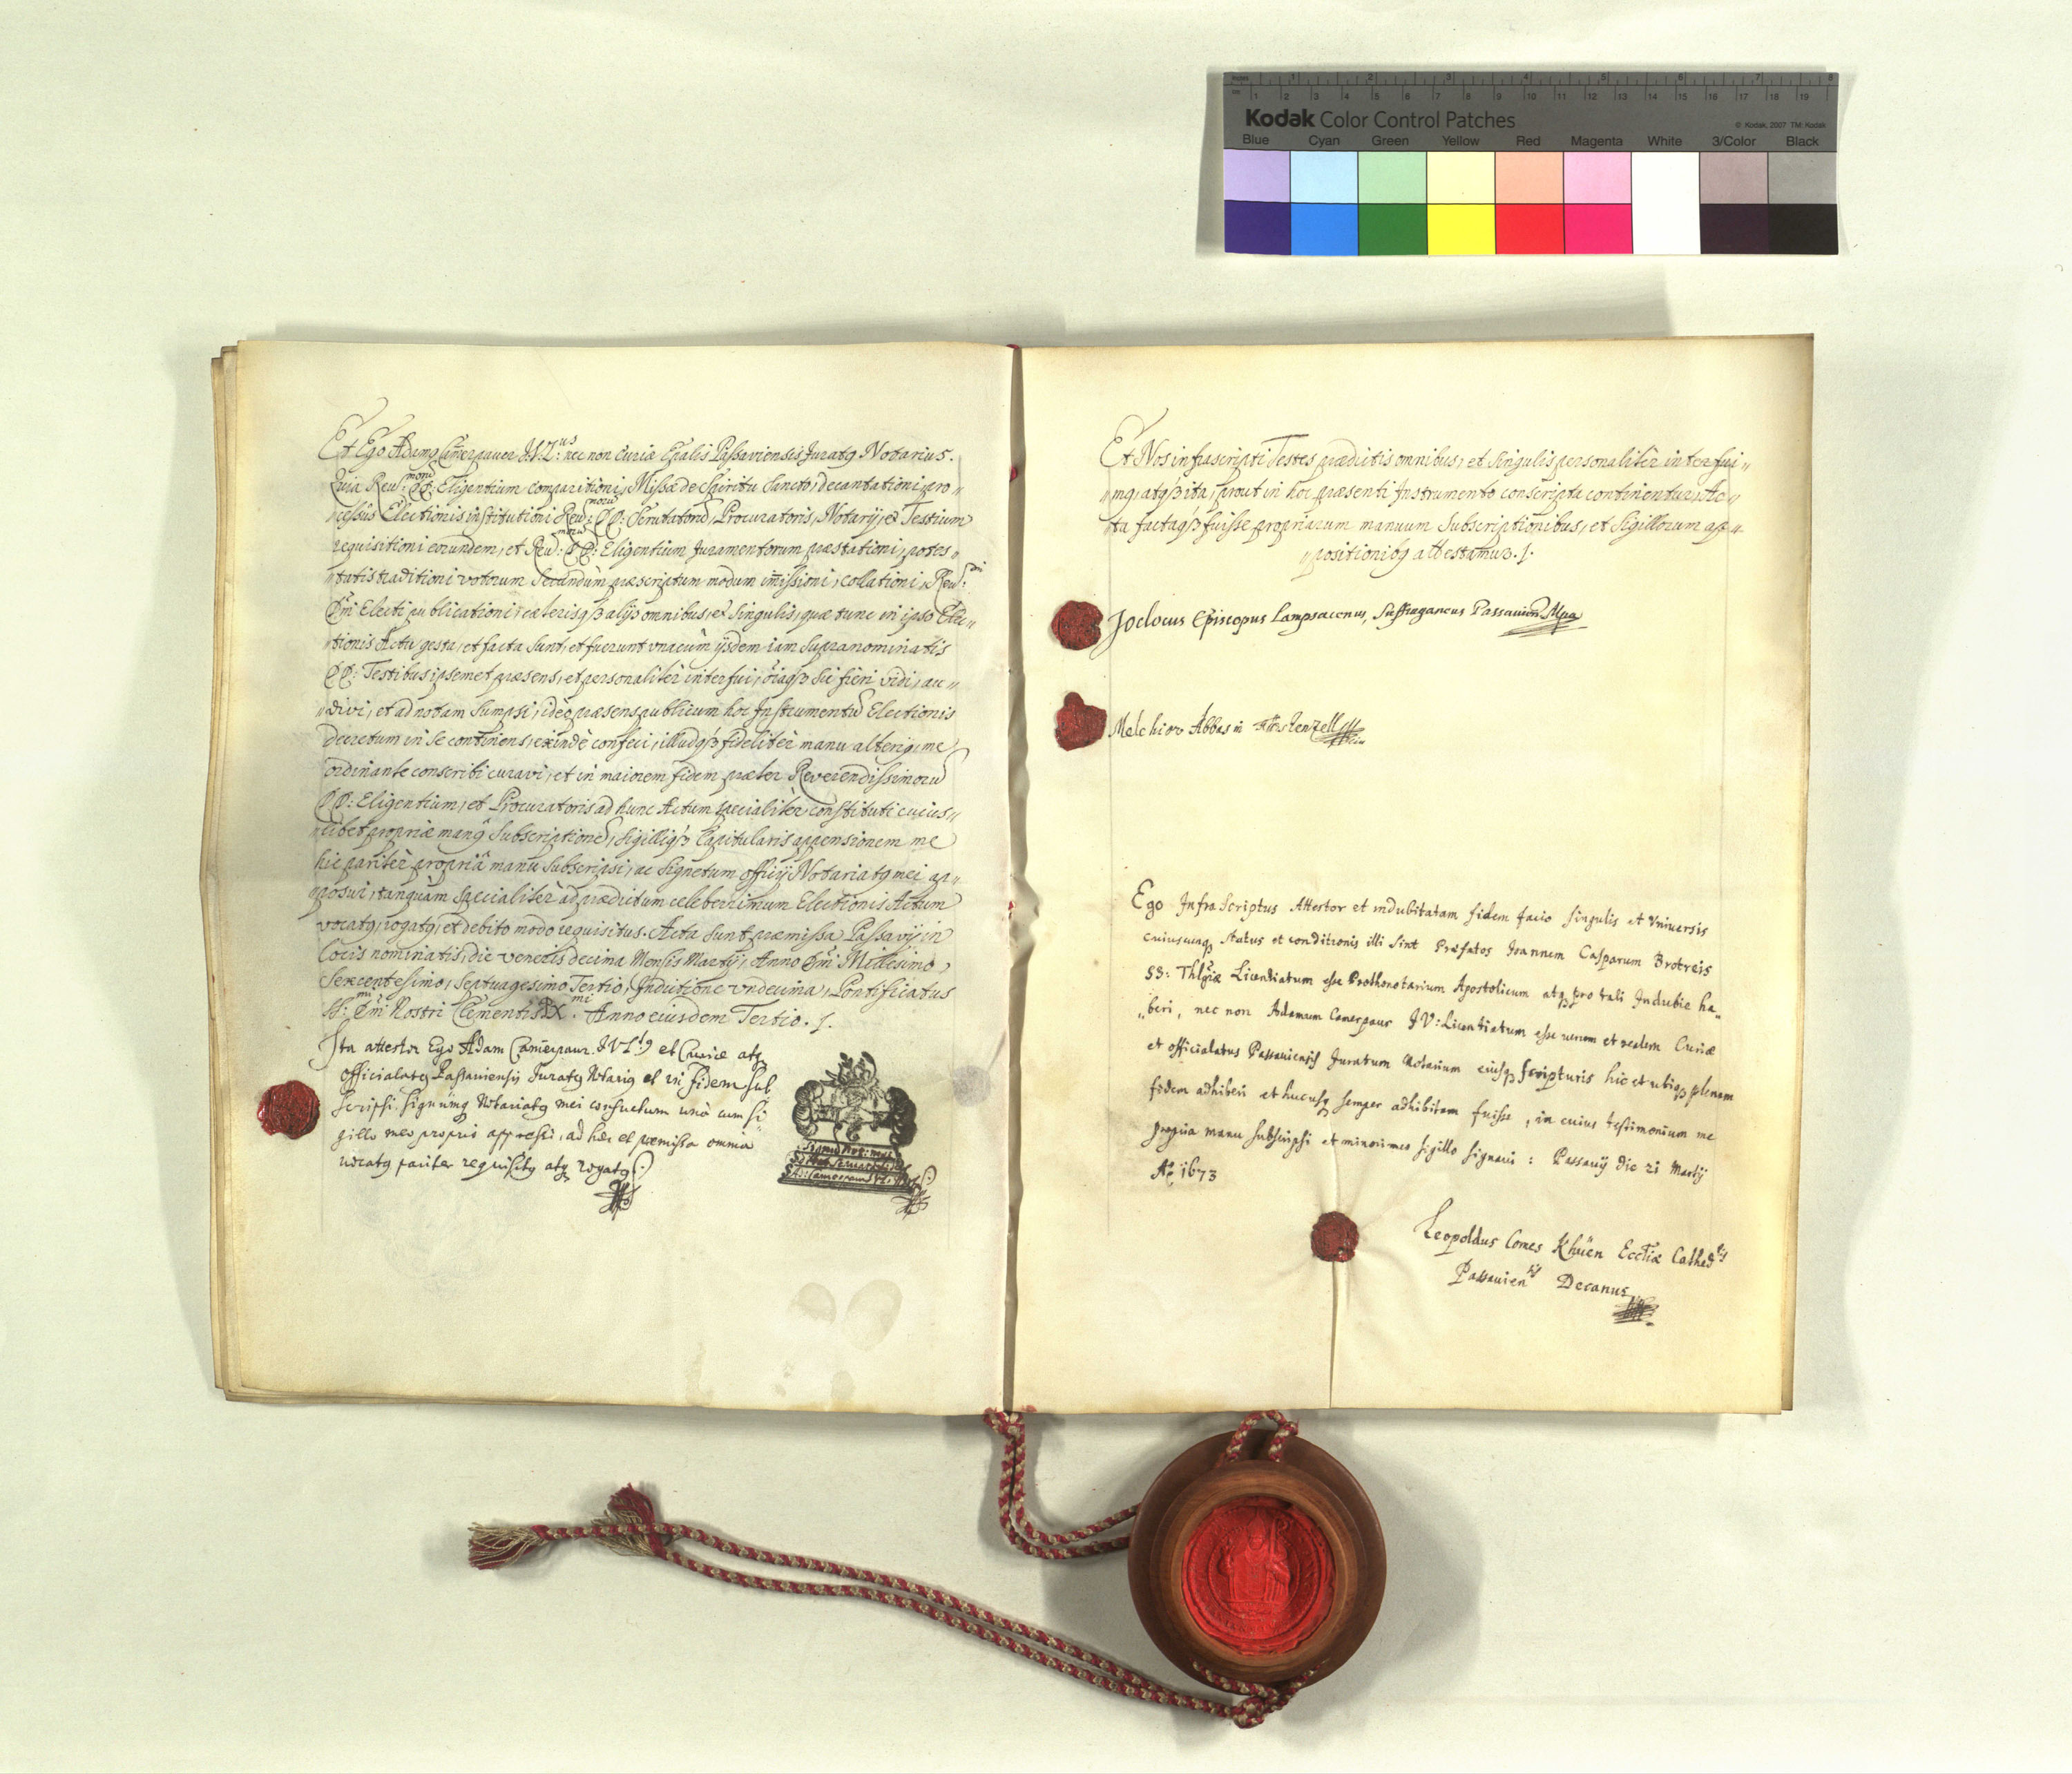 inches 1 2 3 4 5 6 7 8
cm 1 2 3 4 5 6 7 8 9 10 11 12 13 14 15 16 17 18 19
Kodak Color Control Patches © Kodak, 2007 TM: Kodak
Blue Cyan Green Yellow Red Magenta White 3/Color Black
Et Ego Adamq Camerpauer J.V.L:us nec non Curiæ Epalis Passaviensis Juratq Notarius.
Quia Reu:morũ DD: Eligentium comparitioni, Missæ de Spiritu Sancto, decantationi, pro„
„cessus Electionis institutioni Reu:morũ DD: Scrutatorũ, Procuratoris, Notarij, et Testium
requisitioni eorundem, et Reu:morũ DD: Eligentium Juramentorum præstationi, potes„
„tatis traditioni votorum Secundùm præscriptum modum im̃issioni, collationi, Reu:mi
Dm̃i Electi publicationi, cæterisqꝫ alijs omnibus, et Singulis, quæ tunc in ipso Elec„
„tionis Actu gesta, et facta Sunt, et fuerunt vnacum ijsdem iam Supranominatis
DD: Testibus ipsemet præsens, et personaliter interfui, oiaqꝫ Sic fieri vidi, au„
„divi, et ad notam Sumpsi, ideo præsens publicum hoc Instrumentũ Electionis
Decretum in Se continens, exindè confeci, illudqꝫ fideliter manu alteriq me
ordinante conscribi curavi, et in maiorem fidem præter Reverendissimorũ
DD: Eligentium, et Procuratoris ad hunc Actum specialiter constituti cuius„
„libet propriæ manq Subscriptionẽ, Sigilliqꝫ Capitularis appensionem me
hic pariter propriâ manu Subscripsi, ac Signetum officij Notariatq mei ap„
„posui, tanquàm Specialiter ad prædictum celeberrimum Electionis Actum
vocatq, rogatq, et debito modo requisitus. Acta Sunt præmissa Passavij in
locis nominatis, die veneris decima Mensis Martij, Anno Dm̃i Millesimo,
Sexcentesimo, Septuagesimo Tertio, Indictione vndecima, Pontificatus
SS:mi Dm̃i Nostri Clementis X.mi Anno eiusdem Tertio.
Ita attestor Ego Adam Camerpaur. JVLtq et Curiæ atq
officialatq Passaviensis Juratq Notariq et in fidem sub
scripsi. signumq Notariatq mei consuetum unà cum si„
gillo meo proprio appressi, ad hæc et præmissa omnia
vocatq pariter requisitq atq rogatq
Et Nos infrascripti Testes prædictis omnibus, et Singulis personaliter interfui„
„mq, atqꝫ ita, prout in hoc præsenti Instrumento conscripta continentur, Ac„
„ta factaqꝫ fuisse propriarum manuum Subscriptionibus, et Sigillorum ap„
„positionibq attestamur.
Jodocus Episcopus Lampsacenus, Suffraganeus Passauien. Mpa
Melchior Abbas in
Ego Infra Scriptus Attestor et indubitatam fidem facio singulis et Vniuersis
cuiuscunq status et conditionis illi sint Præfatos Joannem Casparum Brotreis
SS: Thlgiæ Licentiatum esse Prothonotarium Apostolicum atq pro tali Indubie ha„
„beri, nec non Adamum Camerpaur JV: Licentiatum esse verum et realem Curiæ
et officialatus Passauiensis Juratum Notarium eiusq scripturis hic et ubiq plenam
fidem adhiberi et hucusq semper adhibitam fuisse, in cuius testimonium me
propria manu subscripsi et minori meo sigillo signaui: Passauij die 21 Martij
Aõ 1673
Leopoldus Comes Khüen Eccliæ Cathedlis
Passauiensis Decanus